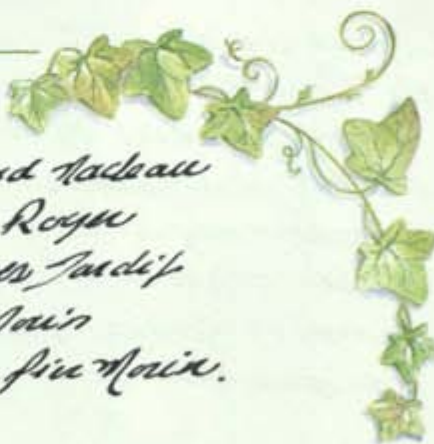 nd Nadeau
Royer
es Tardif
Morin
feu Morin.